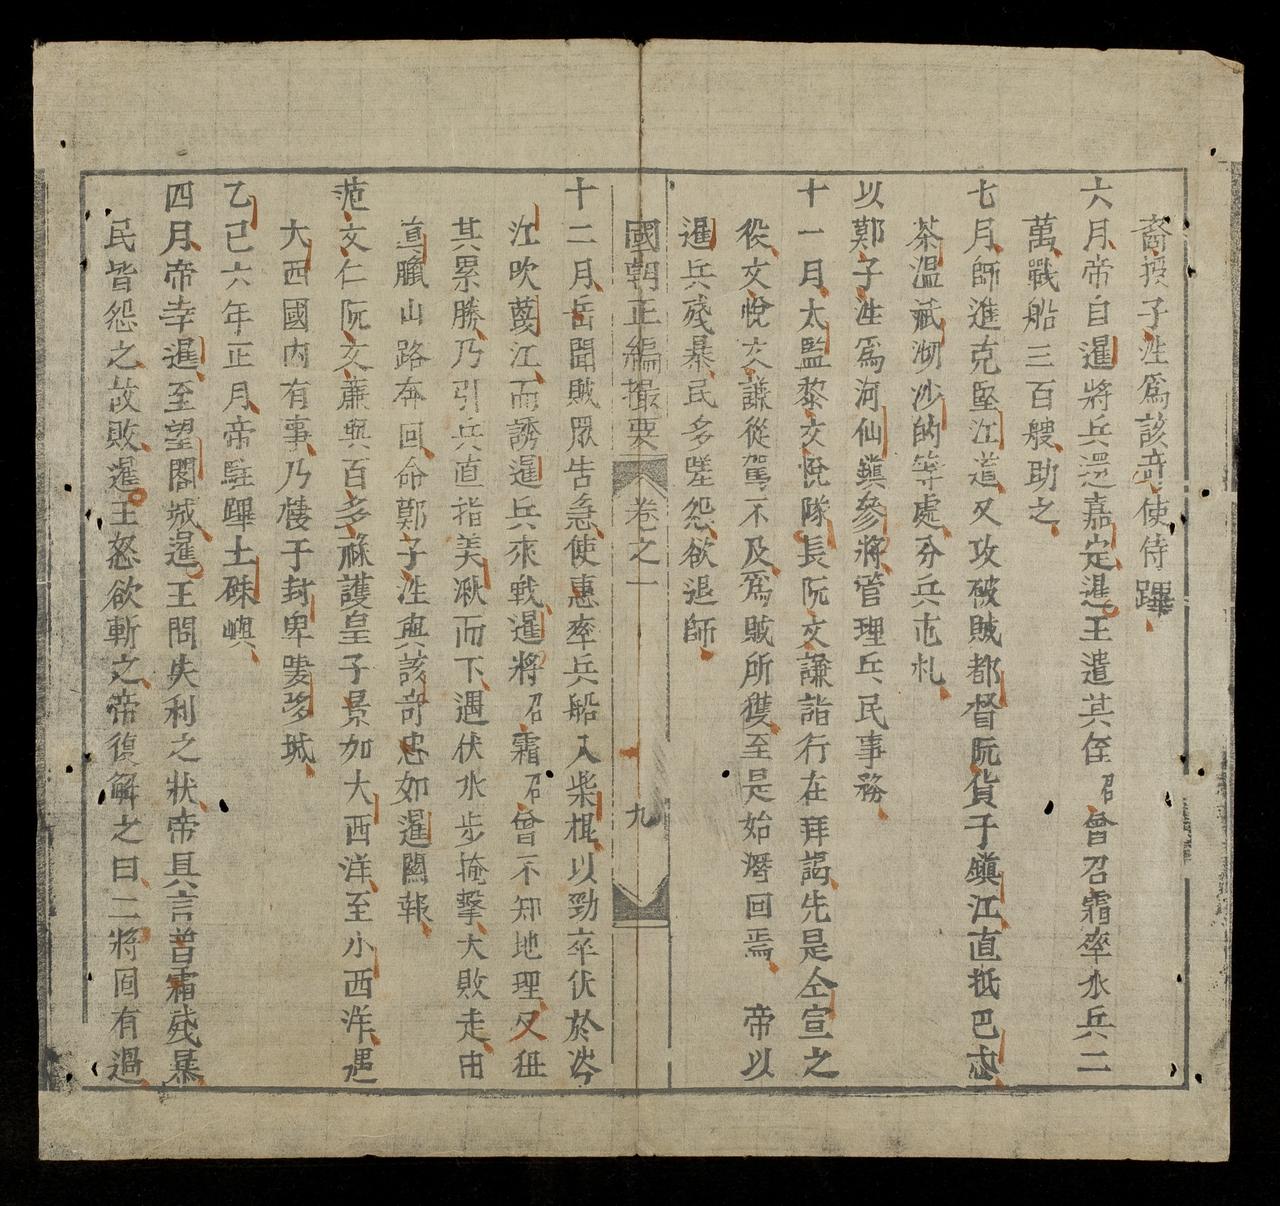 裔授子泩爲該竒使侍蹕
六月帝自暹將兵還嘉定暹王遣其侄昭曾召霜率水兵二
萬戰船三百艘助之
七月師進克堅江道又攻破賊都督阮貨于鎭江直抵巴忐
茶溫瀐沏沙的等處分兵屯札
以鄭子泩爲河仙鎭參將管理兵民事務
十一月太監黎文悅隊長阮文謙詣行在拜謁先是仝宣之
役文悅文謙從駕不及爲賊所獲至是始潛回焉 帝以
暹兵殘暴民多嗟怨欲退師
國朝正編撮要 卷之一 九
十二月岳聞賊眾告急使惠率兵船入柴棍以勁卒伏於岑
江吹蔑江而誘暹兵來戰暹將昭霜昭曾不知地理又狃
其累勝乃引兵直指美湫而下遇伏水步掩擊大敗走由
眞臘山路奔回命鄭子泩與該竒忠如暹闗報
范文仁阮文亷與百多祿護皇子景如大西洋至小西洋遇
大西國內有事乃棲于封卑婁𢒎城
乙巳六年正月帝駐蹕土硃嶼
四月帝幸暹至望閣城暹王問失利之狀帝具言曾霜殘暴
民皆怨之故敗暹王怒欲斬之帝復解之曰二將固有過